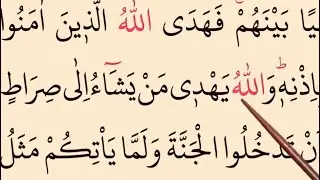 يًا بَيْنَهُمْۚ فَهَدَى اللّٰهُ الَّذ۪ينَ اٰمَنُوا
بِاِذْنِه۪ۜ وَاللّٰهُ يَهْد۪ي مَنْ يَشَٓاءُ اِلٰى صِرَاطٍ
اَنْ تَدْخُلُوا الْجَنَّةَ وَلَمَّا يَأْتِكُمْ مَثَلُ